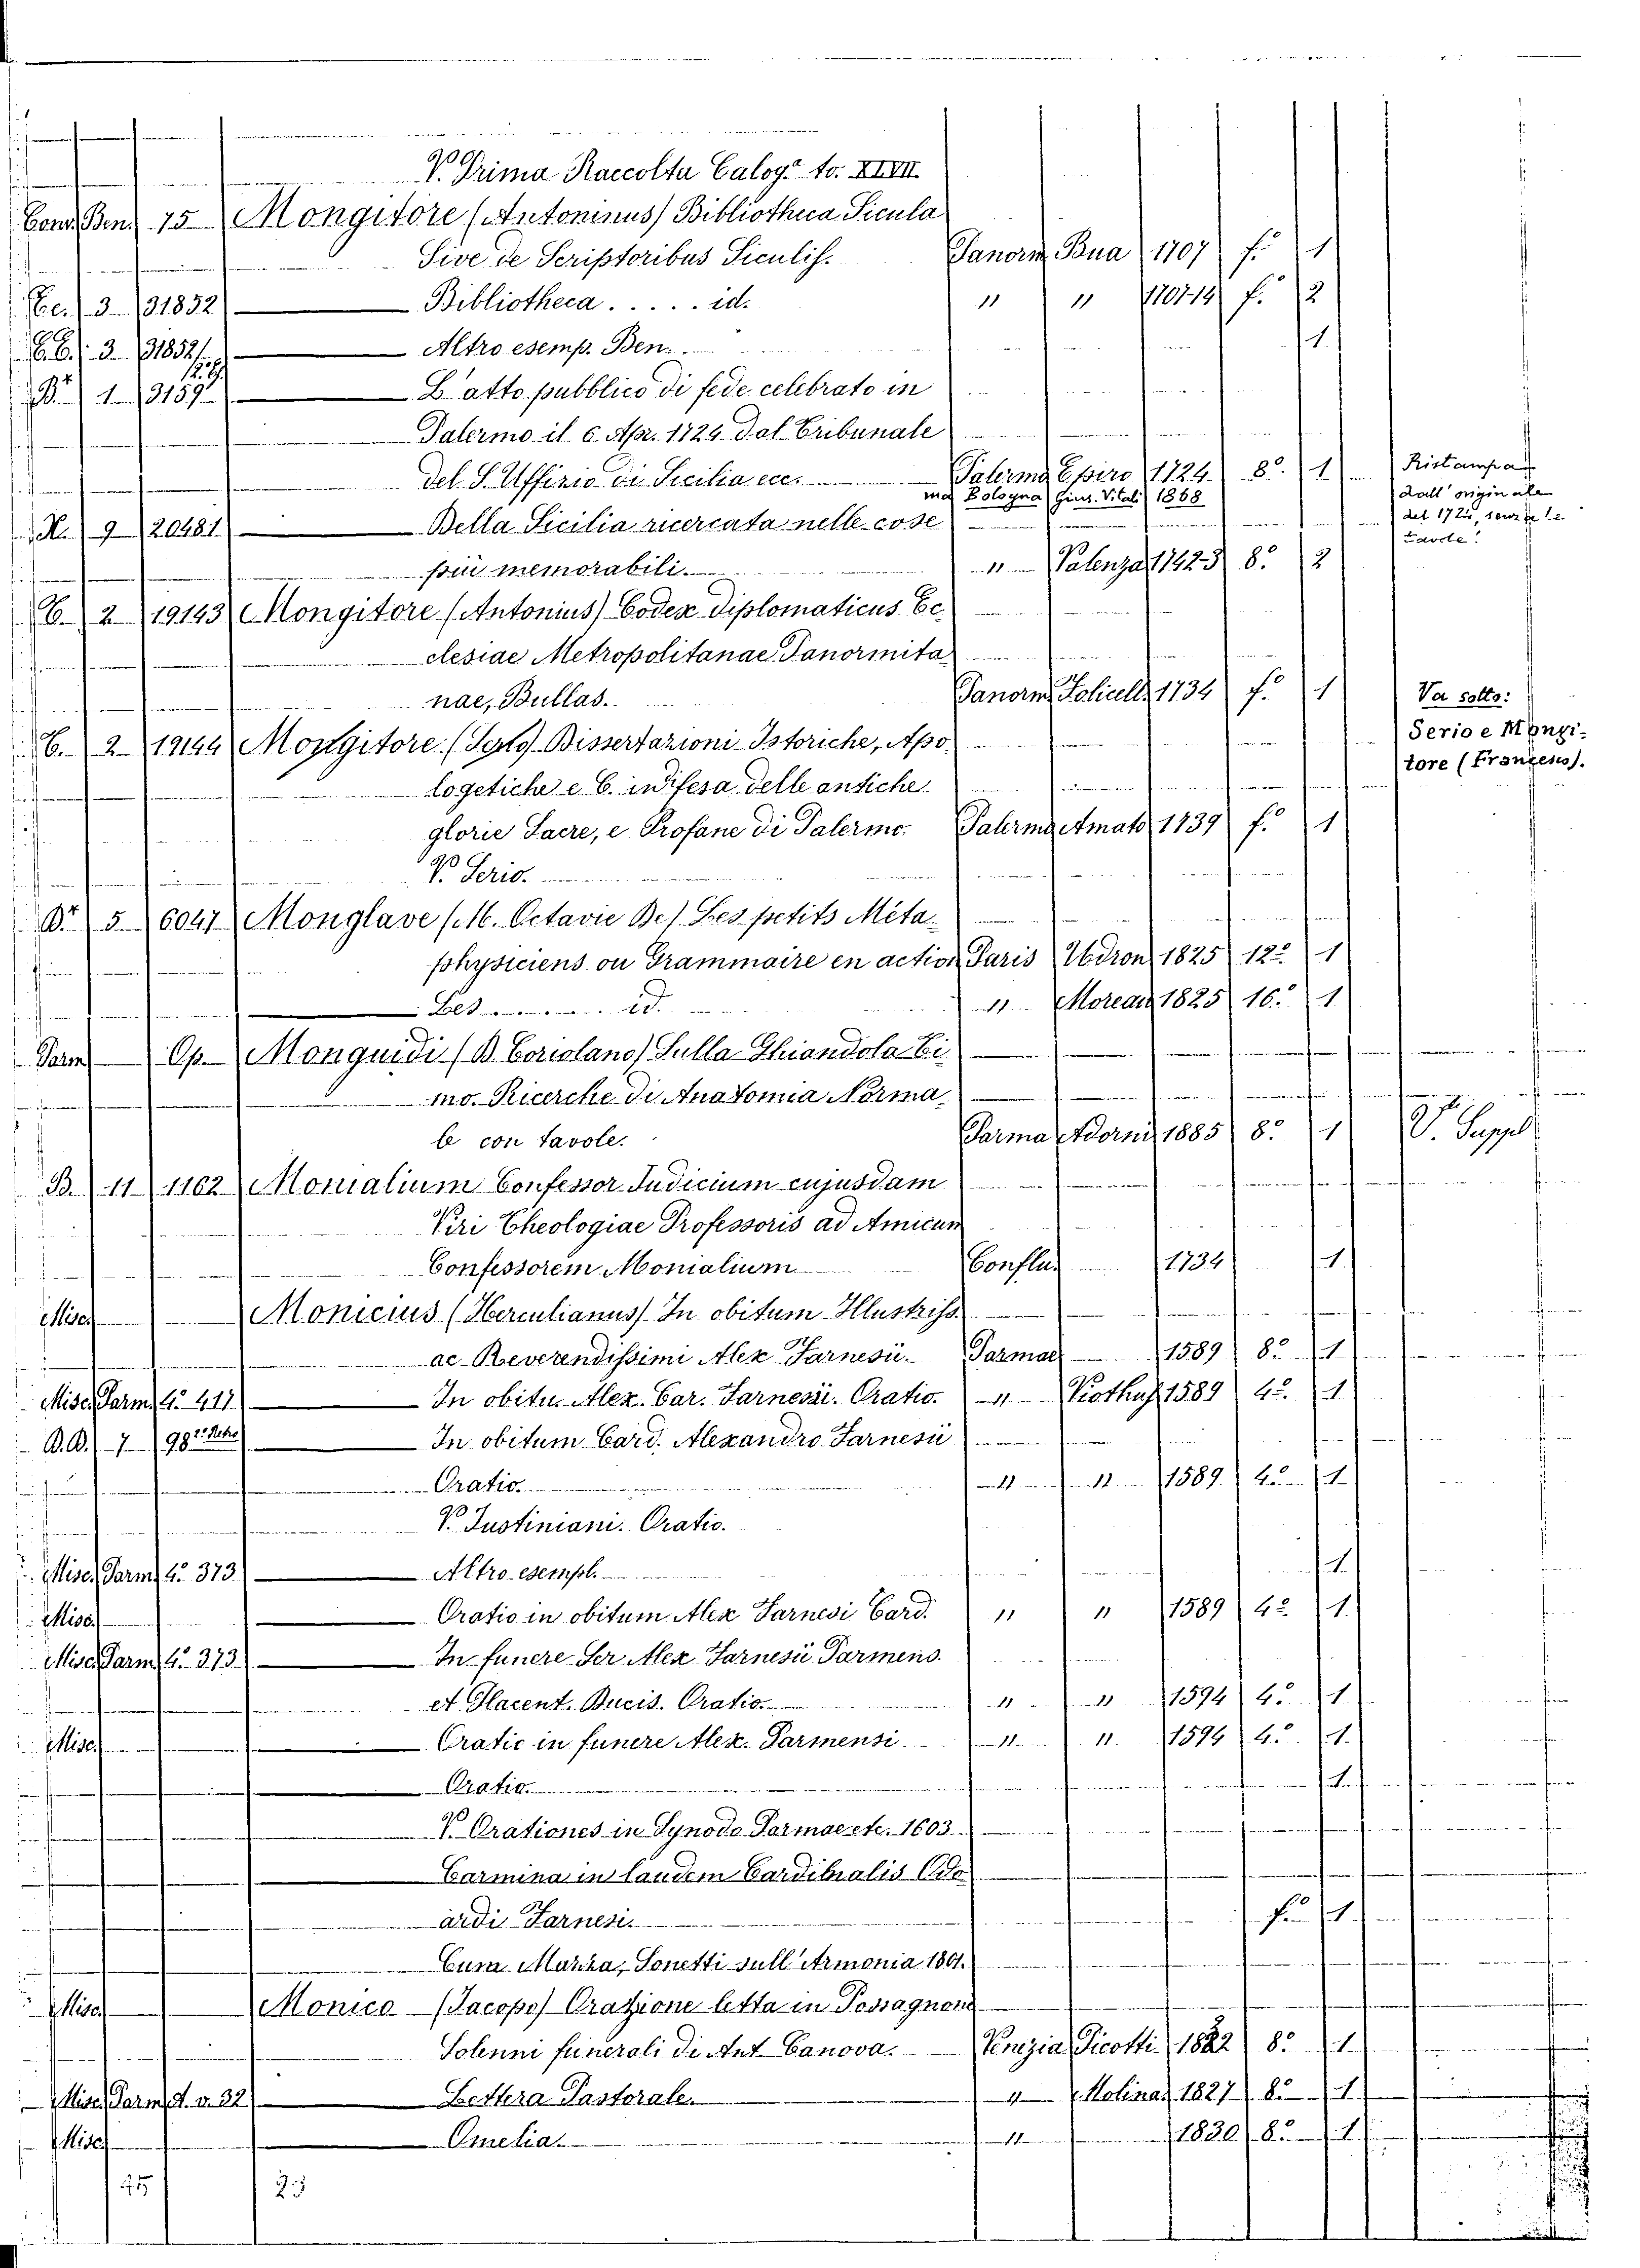 V. Prima Raccolta Calog.ª to. XLVII.
Cons. Ben. 15 Mongitore (Antoninus) Bibliotheca Sicula
Sive de Scriptoribus Siculis. Panorm. Bua 1707 f.º 1
Cc. 3 31852 Bibliotheca ..... id. " " 1707-14 f. 2
C.C. 3 31852/ Altro esemp. Ben. 1
Br 1 3159 L'atto pubblico di fede celebrato in
Palermo il 6. Apr. 1724 dal Tribunale
del S. Uffizio di Sicilia ecc. Palermo Epiro 1724. 8.º 1 Ristampa
ma Bologna Gius. Vitali 1868 dall' originale
N. 9 20481 Bella Sicilia ricercata nelle cose del 1724, senza le
tavole.
più memorabili. " Valenza 1742-3 8.º 2
C. 2 19143 Mongitore (Antonius) Codex Diplomaticus Ec
clesiae Metropolitanae Panormita
nae, Bullas. Panorm. Felicell. 1734 f.º 1 Va sotto:
C. 2 19144 Mongitore Dissertazioni Istoriche, Apo Serio e Mongi-
tore (Francesco).
logetiche e C. in difesa delle antiche
glorie Sacre, e Profane di Palermo. Palermo Amato 1739 f.º 1
V. Serio.
Dr 5 6041 Monglave (M. Octavie De) Les petits Méta-
physiciens ou Grammaire en action Paris Udron 1825 12º 1
Les id. " Moreau 1825 16.º 1
Parm. Op. Monguidi (D. Coriolano) Sulla Ghiandola Ti
mo. Ricerche di Anatomia Norma
le con tavole. Parma Adorni 1885 8º 1 V. Suppl
B. 11 1162 Monialium Confessor Judicium cujusdam
Viri Theologiae Professoris ad Amicum
Confessorem Monialium Conflu. 1734 1
Misc. Monicius (Herculianus) In obitum Illustriss.
ac Reverendissimi Alex Farnesii. Parmae 1589 8º 1
Misc. Parm. 4.º 417. In obitu. Alex. Car. Farnesii. Oratio. " Viothus 1589 4º 1
D.D. 7 98 In obitum Card. Alexandro Farnesii
Oratio. " " 1589 4º 1
V. Justiniani. Oratio.
Misc. Parm. 4º 373 Altro esempl. 1
Misc. Oratio in obitum Alex Farnesi Card. " " 1589 4º 1
Misc. Parm. 4º 373 In funere Ser Alex Farnesii Parmens.
et Placent. Ducis. Oratio. " " 1594 4º 1
Misc. Oratio in funere Alex. Parmensi " " 1594 4º 1
Oratio. 1
V. Orationes in Synodo Parmae etc. 1603.
Carmina in laudem Cardinalis Odo
ardi Farnesi. f.º 1
Cum Mazza, Sonetti sull'Armonia 1801.
Misc. Monico (Jacopo) Orazione letta in Possagno ne
Solenni funerali di Ant. Canova. Venezia Picotti 1822 8º 1
Misc. Parm. A. v. 32 Lettera Pastorale. " Molinari 1827 8º 1
Misc. Omelia. " 1830 8º 1
45 25